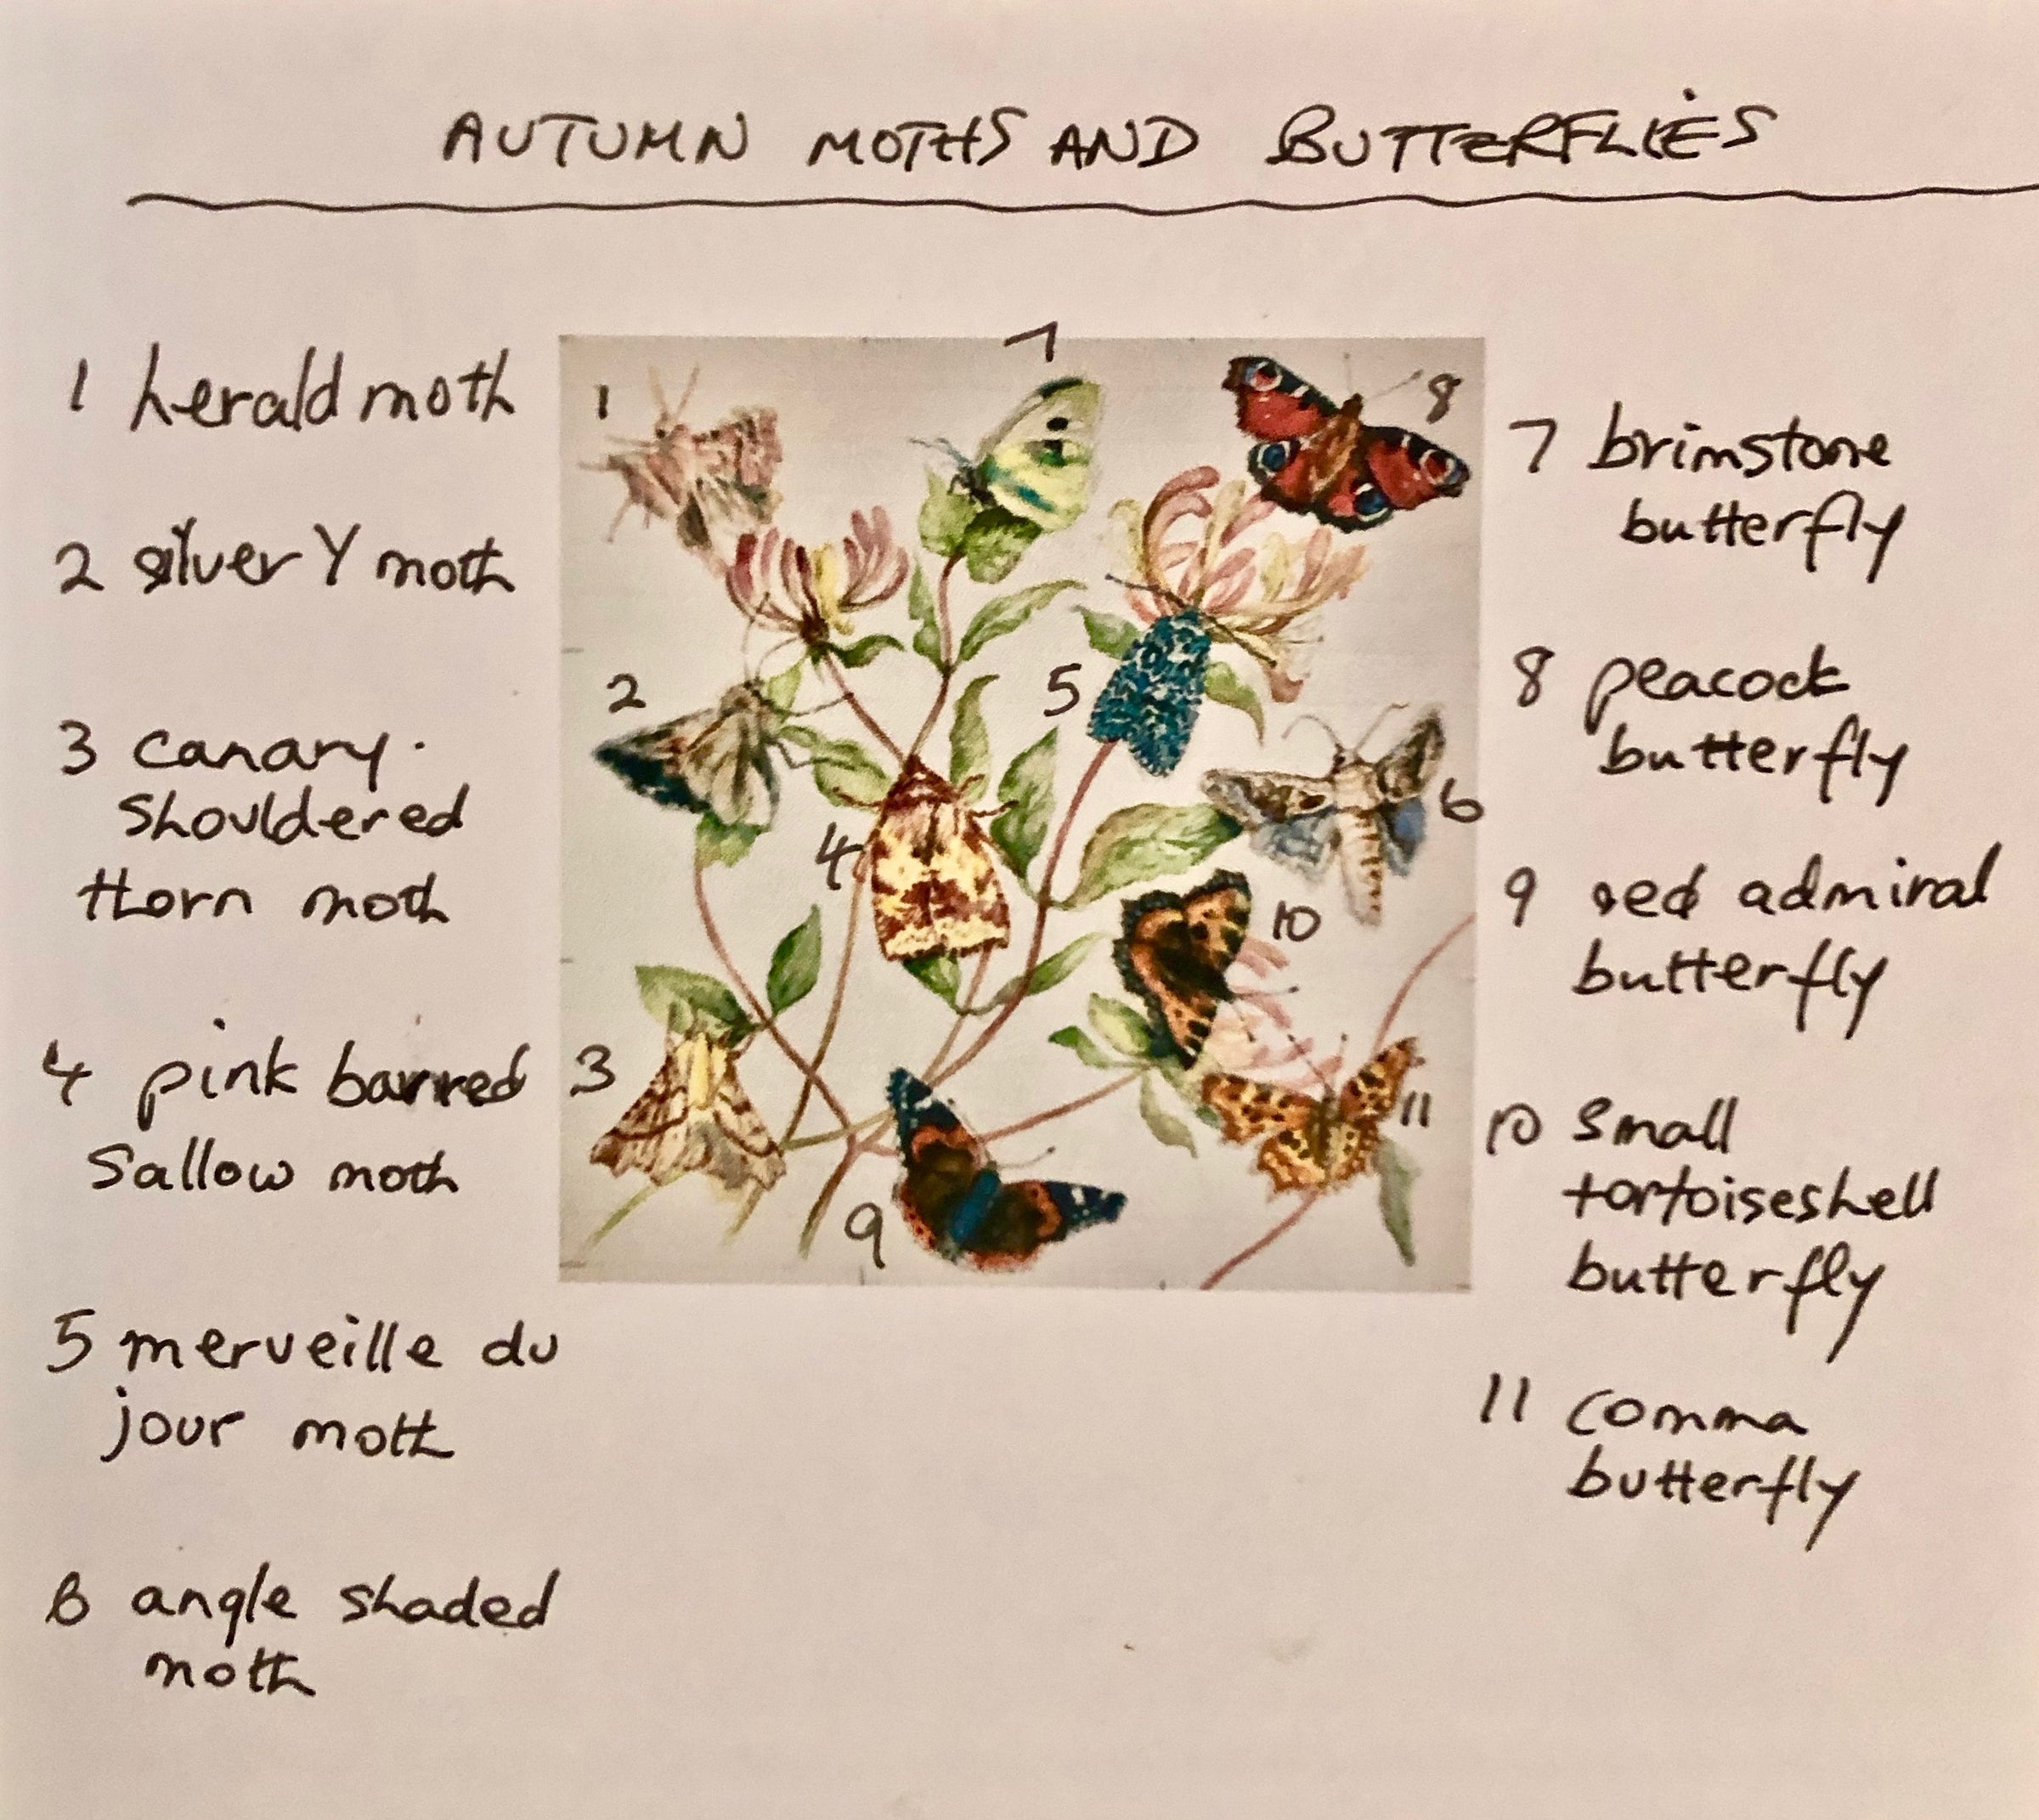 AUTUMN MOTHS AND BUTTERFLIES
1 herald moth
2 silver Y moth
3 canary-
shouldered
thorn moth
4 pink barred
sallow moth
5 merveille du
jour moth
6 angle shaded
moth
1
2
3
4
5
6
7
8
9
10
11
7 brimstone
butterfly
8 peacock
butterfly
9 red admiral
butterfly
10 small
tortoiseshell
butterfly
11 comma
butterfly